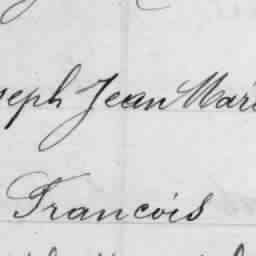 seph Jean Mari
Francois